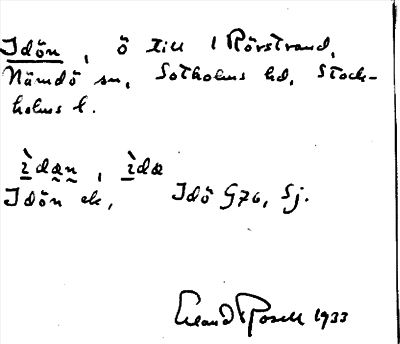 Idön, ö till 1 Rörstrand,
Nämdö sn, Sotholms hd, Stock-
holms l.
ìdæn, ìdæ
Idön ek, Idö G76, Sj.
Erland Rosell 1933